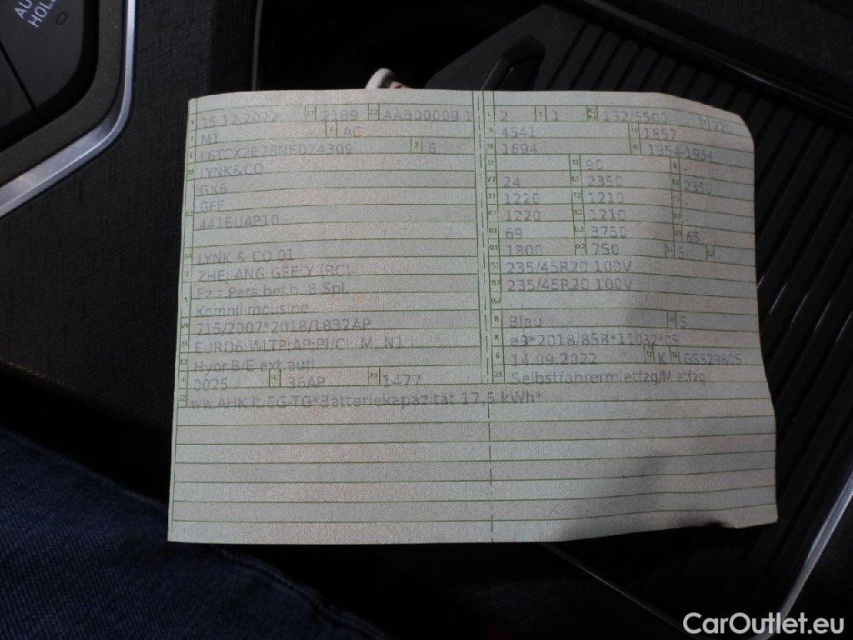 AU
HOL
15.12.2022 2189 AA300009 1
M1 AC
6
LYNK&CO
GX6
GEE
441EUAP10
LYNK & CO 01
ZHEJIANG GEELY (RC)
Fz.z.Pers.bef.b. 8 Spl.
Kombilimousine
715/2007*2018/1832AP
EURO6 WLTP AP-PI/CI M, N1 I
Hybr.B/E ext.aufl
0025 36AP 1477
ww.AHK lt.EG-TG*Batteriekapazität 17,5 kWh*
2 1 132/5500
4541 1857
1694 1954-1954
90
24 2350 2350
1220 1210
1220 1210
69 3750 65
1800 750 5
235/45R20 100V
235/45R20 100V
Blau 5
e9*2018/858*11032*05
14.09.2022 K
Selbstfahrermietfzg/Mietfzg
CarOutlet.eu